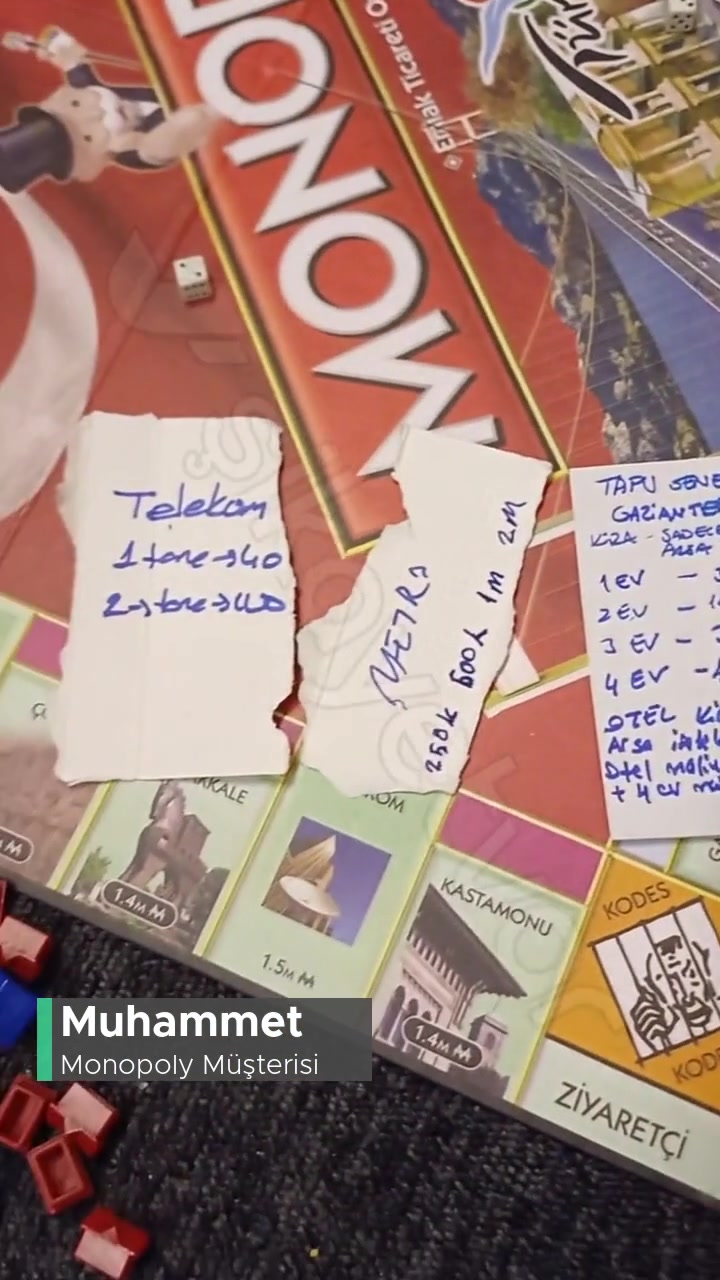 MONO
Emlak Ticareti O
Telekom
1 tane → 40
2 → tane →
METRO
250k 500k 1M 2M
TAPU SENE
GAZİANTE
KİRA - SADECE
ARSA
1 EV -
2 EV - 1
3 EV -
4 EV -
OTEL Kİ
Arsa
Otel maliy
+ 4 ev
KALE
1.4M
KOM
1.5M
KASTAMONU
1.4M
KODES
KODE
ZİYARETÇİ
şikayet
Muhammet
Monopoly Müşterisi